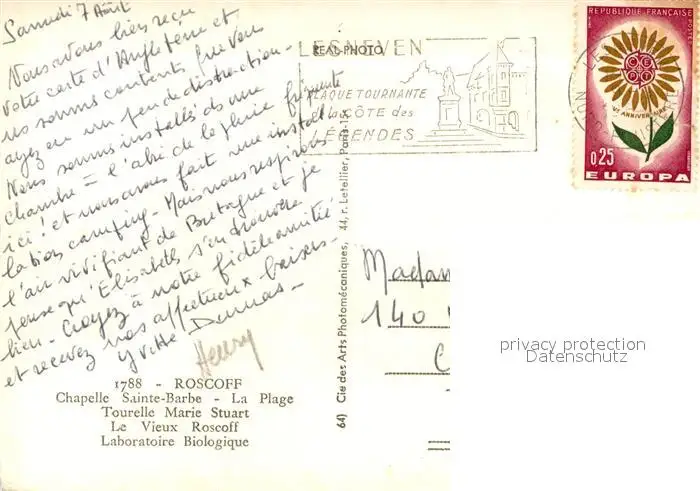 Samedi 7 Août
Nous avons bien reçu
votre carte d'Angleterre et
ns sommes contents que vous
ayez eu un peu de distraction -
Nous sommes installés ds une
chambre = l'abri de la pluie fréquente
ici ! et nous avons fait une instal-
lation camping - Mais nous respirons
l'air vivifiant de Bretagne et je
pense qu'Elisabeth s'en trouvera
bien - Croyez à notre fidèle amitié
et recevez nos affectueux baisers -
Yvette Dumas -
Henry
1788 - ROSCOFF
Chapelle Sainte-Barbe - La Plage
Tourelle Marie Stuart
Le Vieux Roscoff
Laboratoire Biologique
64) Cie des Arts Photomécaniques, 44, r. Letellier, Paris-15e
REAL-PHOTO
LESNEVEN
PLAQUE TOURNANTE
de la CÔTE des
LÉGENDES
REPUBLIQUE FRANÇAISE
POSTES
CEPT
Ve ANNIVERSAIRE
0,25
EUROPA
Madam
140
C
privacy protection
Datenschutz